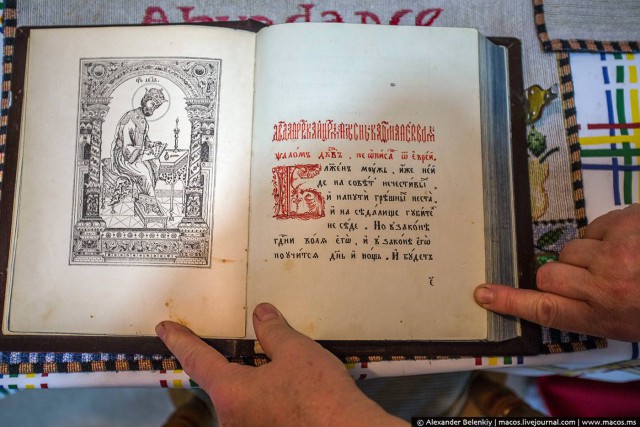 Abundance
ѱаломъ дв҃дъ, не ѡ҆писа ѿ є҆врей,
Блаженъ моужъ, и҆же не и҆
де на совѣтъ нечестивыⷯ
и҆ на поути грѣшныⷯ не ста,
и҆ на сѣдалище гоубитеⷧ
не сѣде. Но в законѣ
гдⷭ҇ни волѧ є҆гѡ̀, и҆ в законѣ є҆гѡ̀
поучитсѧ дн҃ь и҆ нощь. И҆ боудетъ
© Alexander Belenkiy / macos.livejournal.com / www.macos.ms